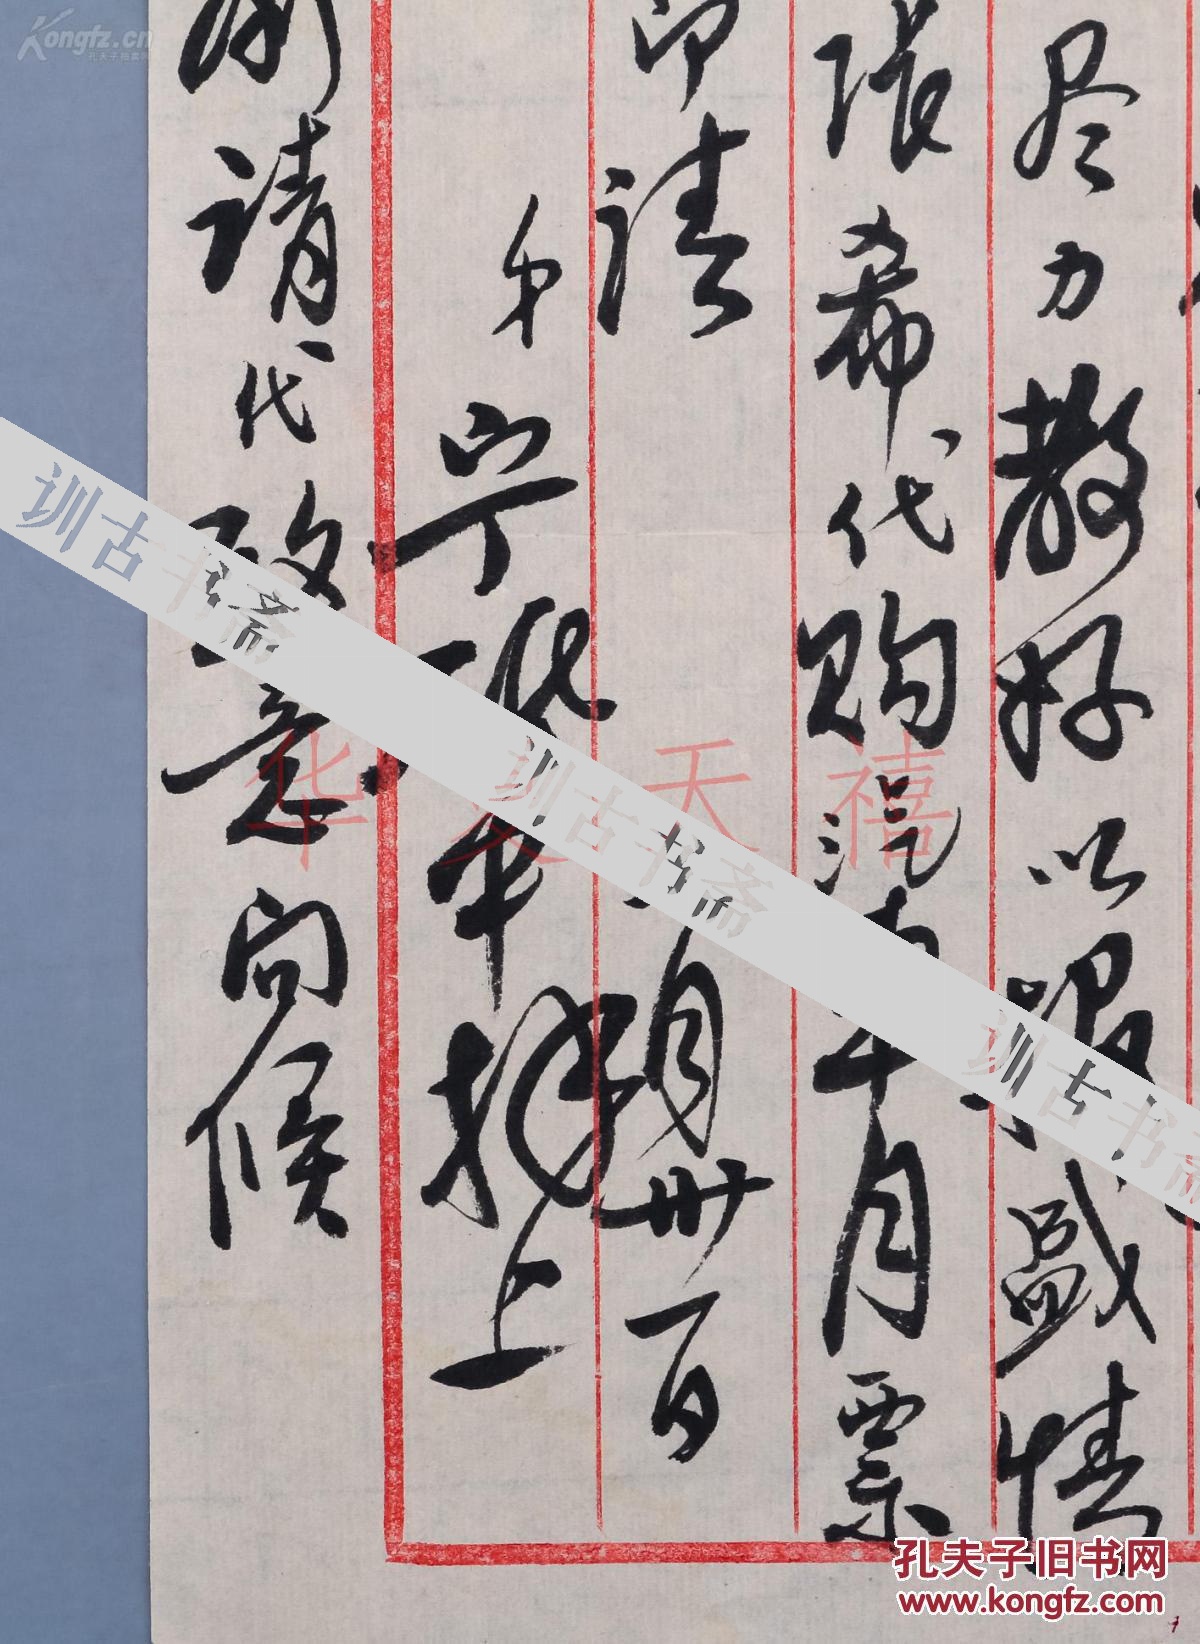 尽力教好以报盛情
张希代购汽车月票
即请
月卅一日
弟宁斧成拜上
请代致意问候
Kongfz.cn
孔夫子拍卖网
训古书斋
训古书斋
训古书斋
华夏天禧
孔夫子旧书网
www.kongfz.com